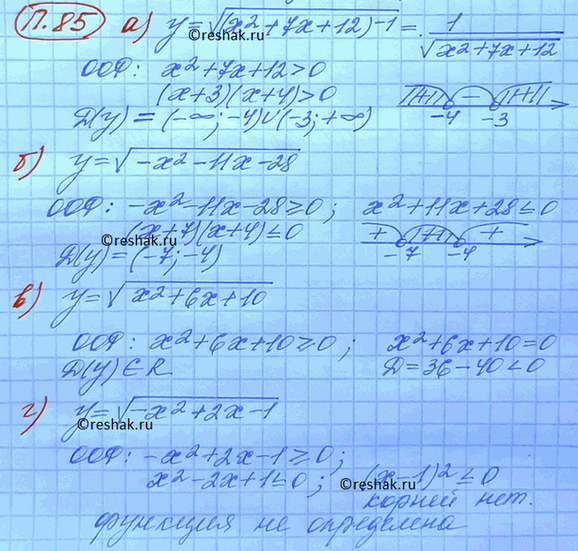 П.85 а) y=√(x²+7x+12)-1) = 1/√(x²+7x+12)
©reshak.ru
ООФ: x²+7x+12>0
(x+3)(x+4)>0
+ - +
-4 -3
Д(y) = (-∞;-4)∪(-3;+∞)
б) y=√(-x²-11x-28)
ООФ: -x²-11x-28≥0; x²+11x+28≤0
(x+7)(x+4)≤0
+ + +
-7 -4
©reshak.ru
Д(y)=(-7;-4)
в) y=√(x²+6x+10)
ООФ: x²+6x+10≥0; x²+6x+10=0
Д(y)∈R Д=36-40<0
г) y=√(-x²+2x-1)
©reshak.ru
ООФ: -x²+2x-1≥0;
x²-2x+1≤0; (x-1)²≤0
©reshak.ru
корней нет.
функция не определена